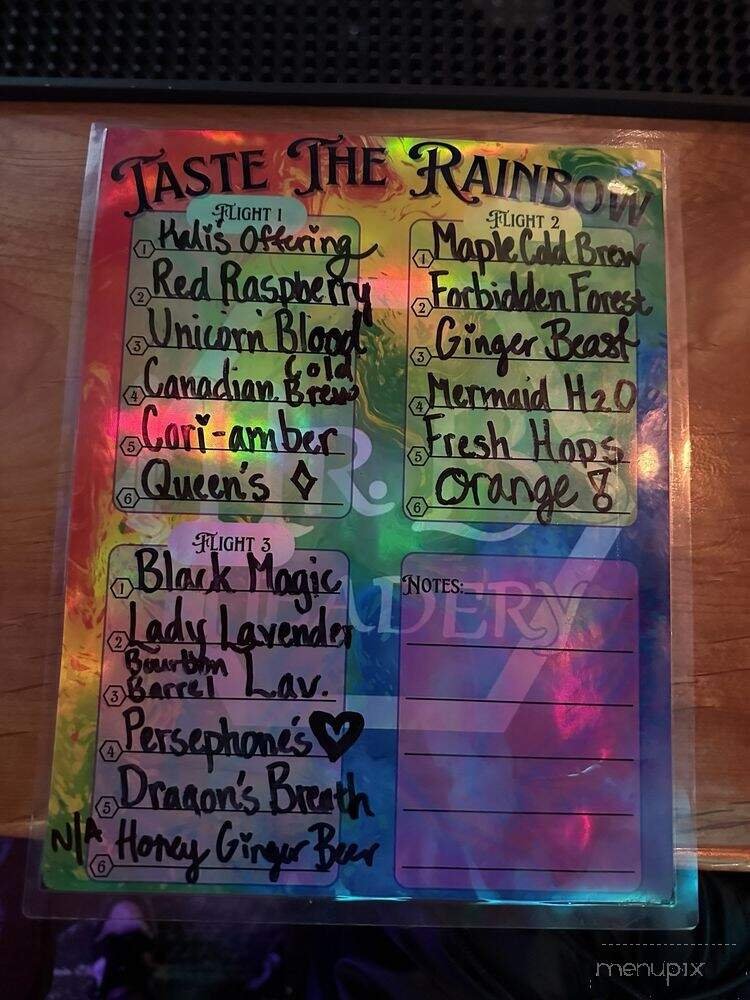 TASTE THE RAINBOW
FLIGHT 1
1 Kali's Offering
2 Red Raspberry
3 Unicorn Blood
4 Canadian Cold Brew
5 Cori-amber
6 Queen's ◇
FLIGHT 2
1 Maple Cold Brew
2 Forbidden Forest
3 Ginger Beast
4 Mermaid H2O
5 Fresh Hops
6 Orange
FLIGHT 3
1 Black Magic
2 Lady Lavender
3 Bourbon Barrel Lav.
4 Persephone's ♥
5 Dragon's Breath
N/A 6 Honey Ginger Beer
NOTES:
R. B
MEADERY
menupix